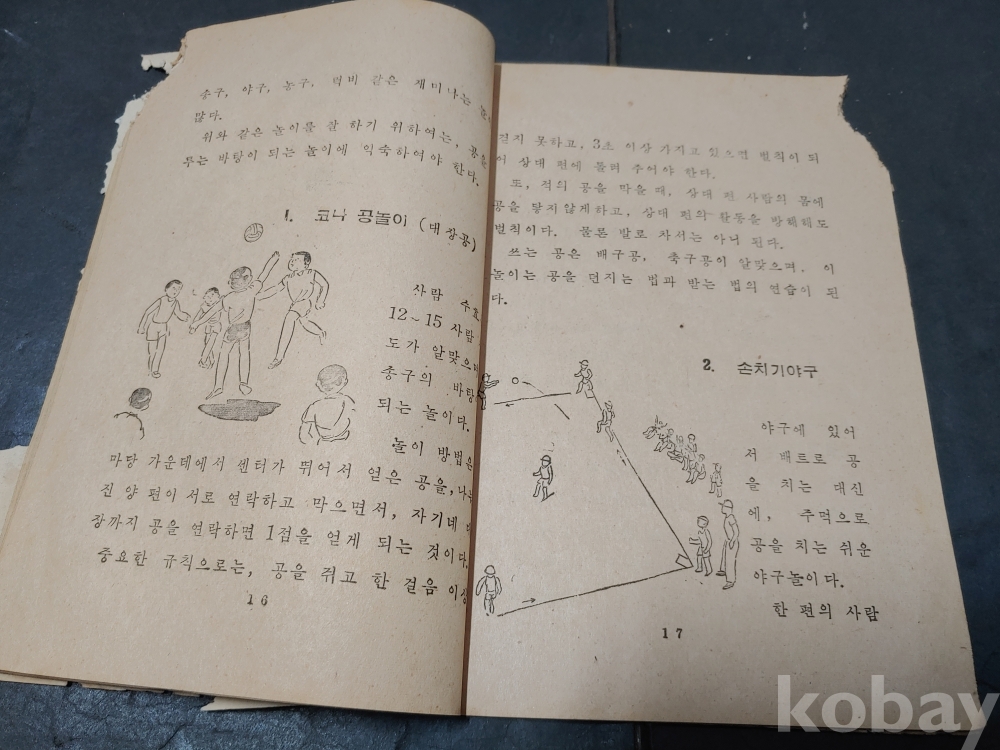 송구, 야구, 농구, 럭비 같은 재미나는
많다.
위와 같은 놀이를 잘 하기 위하여는, 공을
루는 바탕이 되는 놀이에 익숙하여야 한다.
1. 코너 공놀이 (대장공)
사람 수
12~15 사람
도가 알맞으며
송구의 바탕
되는 놀이다.
놀이 방법은
마당 가운데에서 센터가 뛰어서 얻은 공을, 나누
진 양 편이 서로 연락하고 막으면서, 자기네 대
장까지 공을 연락하면 1점을 얻게 되는 것이다.
중요한 규칙으로는, 공을 쥐고 한 걸음 이상
16
걷지 못하고, 3초 이상 가지고 있으면 벌칙이 되
어 상대 편에 돌려 주어야 한다.
또, 적의 공을 막을 때, 상대 편 사람의 몸에
공을 닿지않게하고, 상대 편의 활동을 방해해도
벌칙이다. 물론 발로 차서는 아니 된다.
쓰는 공은 배구공, 축구공이 알맞으며, 이
놀이는 공을 던지는 법과 받는 법의 연습이 된
다.
2. 손치기야구
야구에 있어
서 배트로 공
을 치는 대신
에, 주먹으로
공을 치는 쉬운
야구놀이다.
한 편의 사람
17
kobay